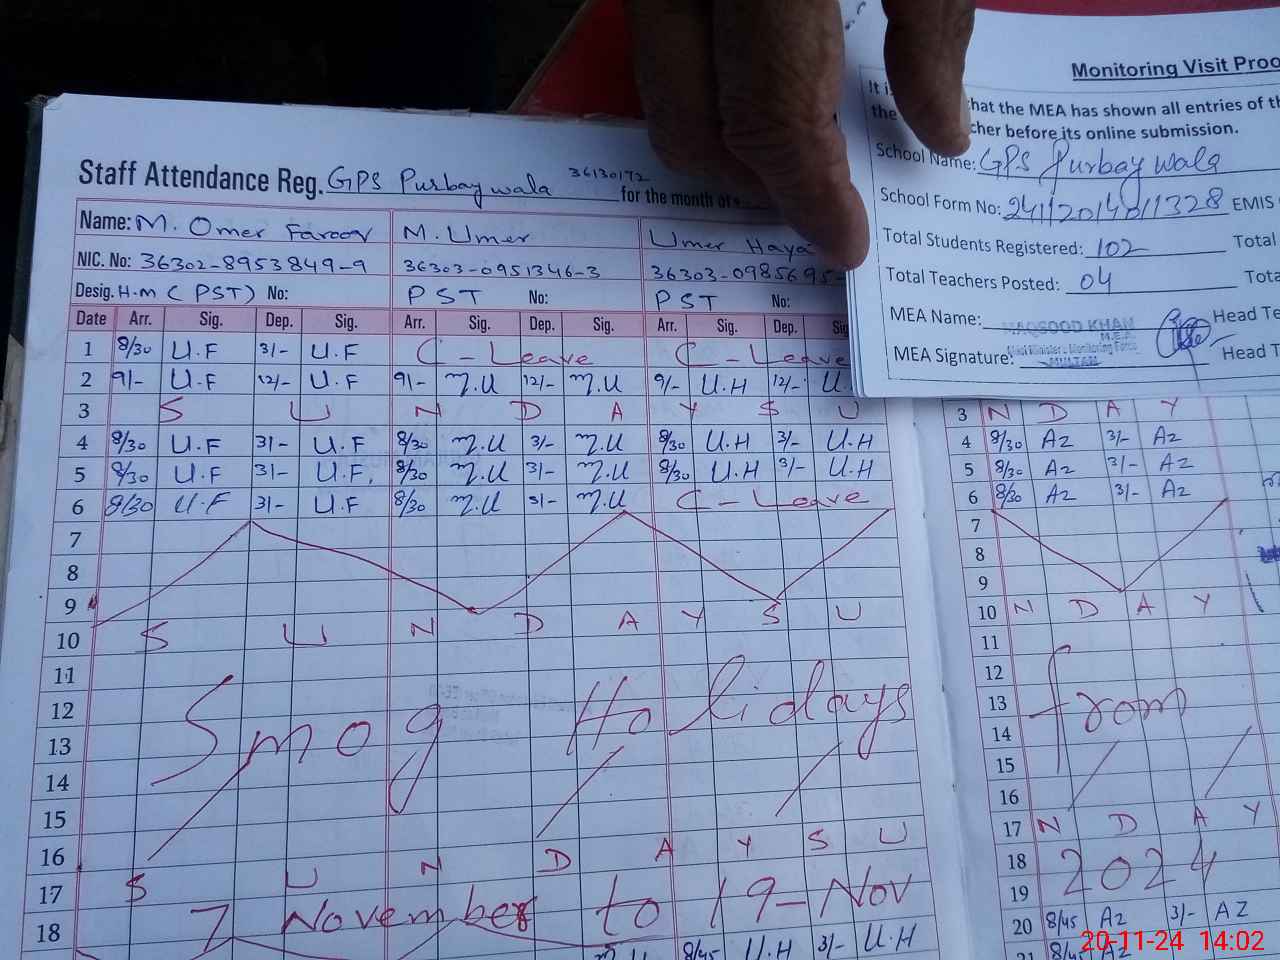 Monitoring Visit Proo
It i
that the MEA has shown all entries of th
the
cher before its online submission.
School Name: GPS Purbay wala
School Form No: EMIS
Total Students Registered: 102 Total
Total Teachers Posted: 04 Tota
MEA Name: Head Te
MAQSOOD KHAN
MEA Signature: Head T
MULTAN
36130172
Staff Attendance Reg. GPS Purbay wala for the month of
Name: M. Omer Farooq M. Umer Umer Haya
NIC. No: 36302-8953849-9 36303-0951346-3 36303-0985695-
Desig. H.M (PST) No: PST No: PST No:
Date Arr. Sig. Dep. Sig. Arr. Sig. Dep. Sig. Arr. Sig. Dep. Sig
1 8/30 U.F 3/- U.F C-Leave C-Leave
2 9/- U.F 12/- U.F 9/- M.U 12/- M.U 9/- U.H 12/- U.
3 S U N D A Y S U 3 N D A Y
4 8/30 U.F 3/- U.F 8/30 M.U 3/- M.U 8/30 U.H 3/- U.H 4 8/30 AZ 3/- AZ
5 8/30 U.F 3/- U.F. 8/30 M.U 3/- M.U 8/30 U.H 3/- U.H 5 8/30 AZ 3/- AZ
6 8/30 U.F 3/- U.F 8/30 M.U 3/- M.U C-Leave 6 8/30 AZ 3/- AZ
7 7
8 8
9 9
10 S U N D A Y S U 10 N D A Y
11 11
12 12
13 Smog Holidays 13 from
14 14
15 15
16 16
17 S U N D A Y S U 17 N D A Y
18 7 November to 19-Nov 18 2024
19
M.U 8/45 U.H 3/- U.H 20 8/45 AZ 3/- AZ
21 8/45 AZ
20-11-24 14:02